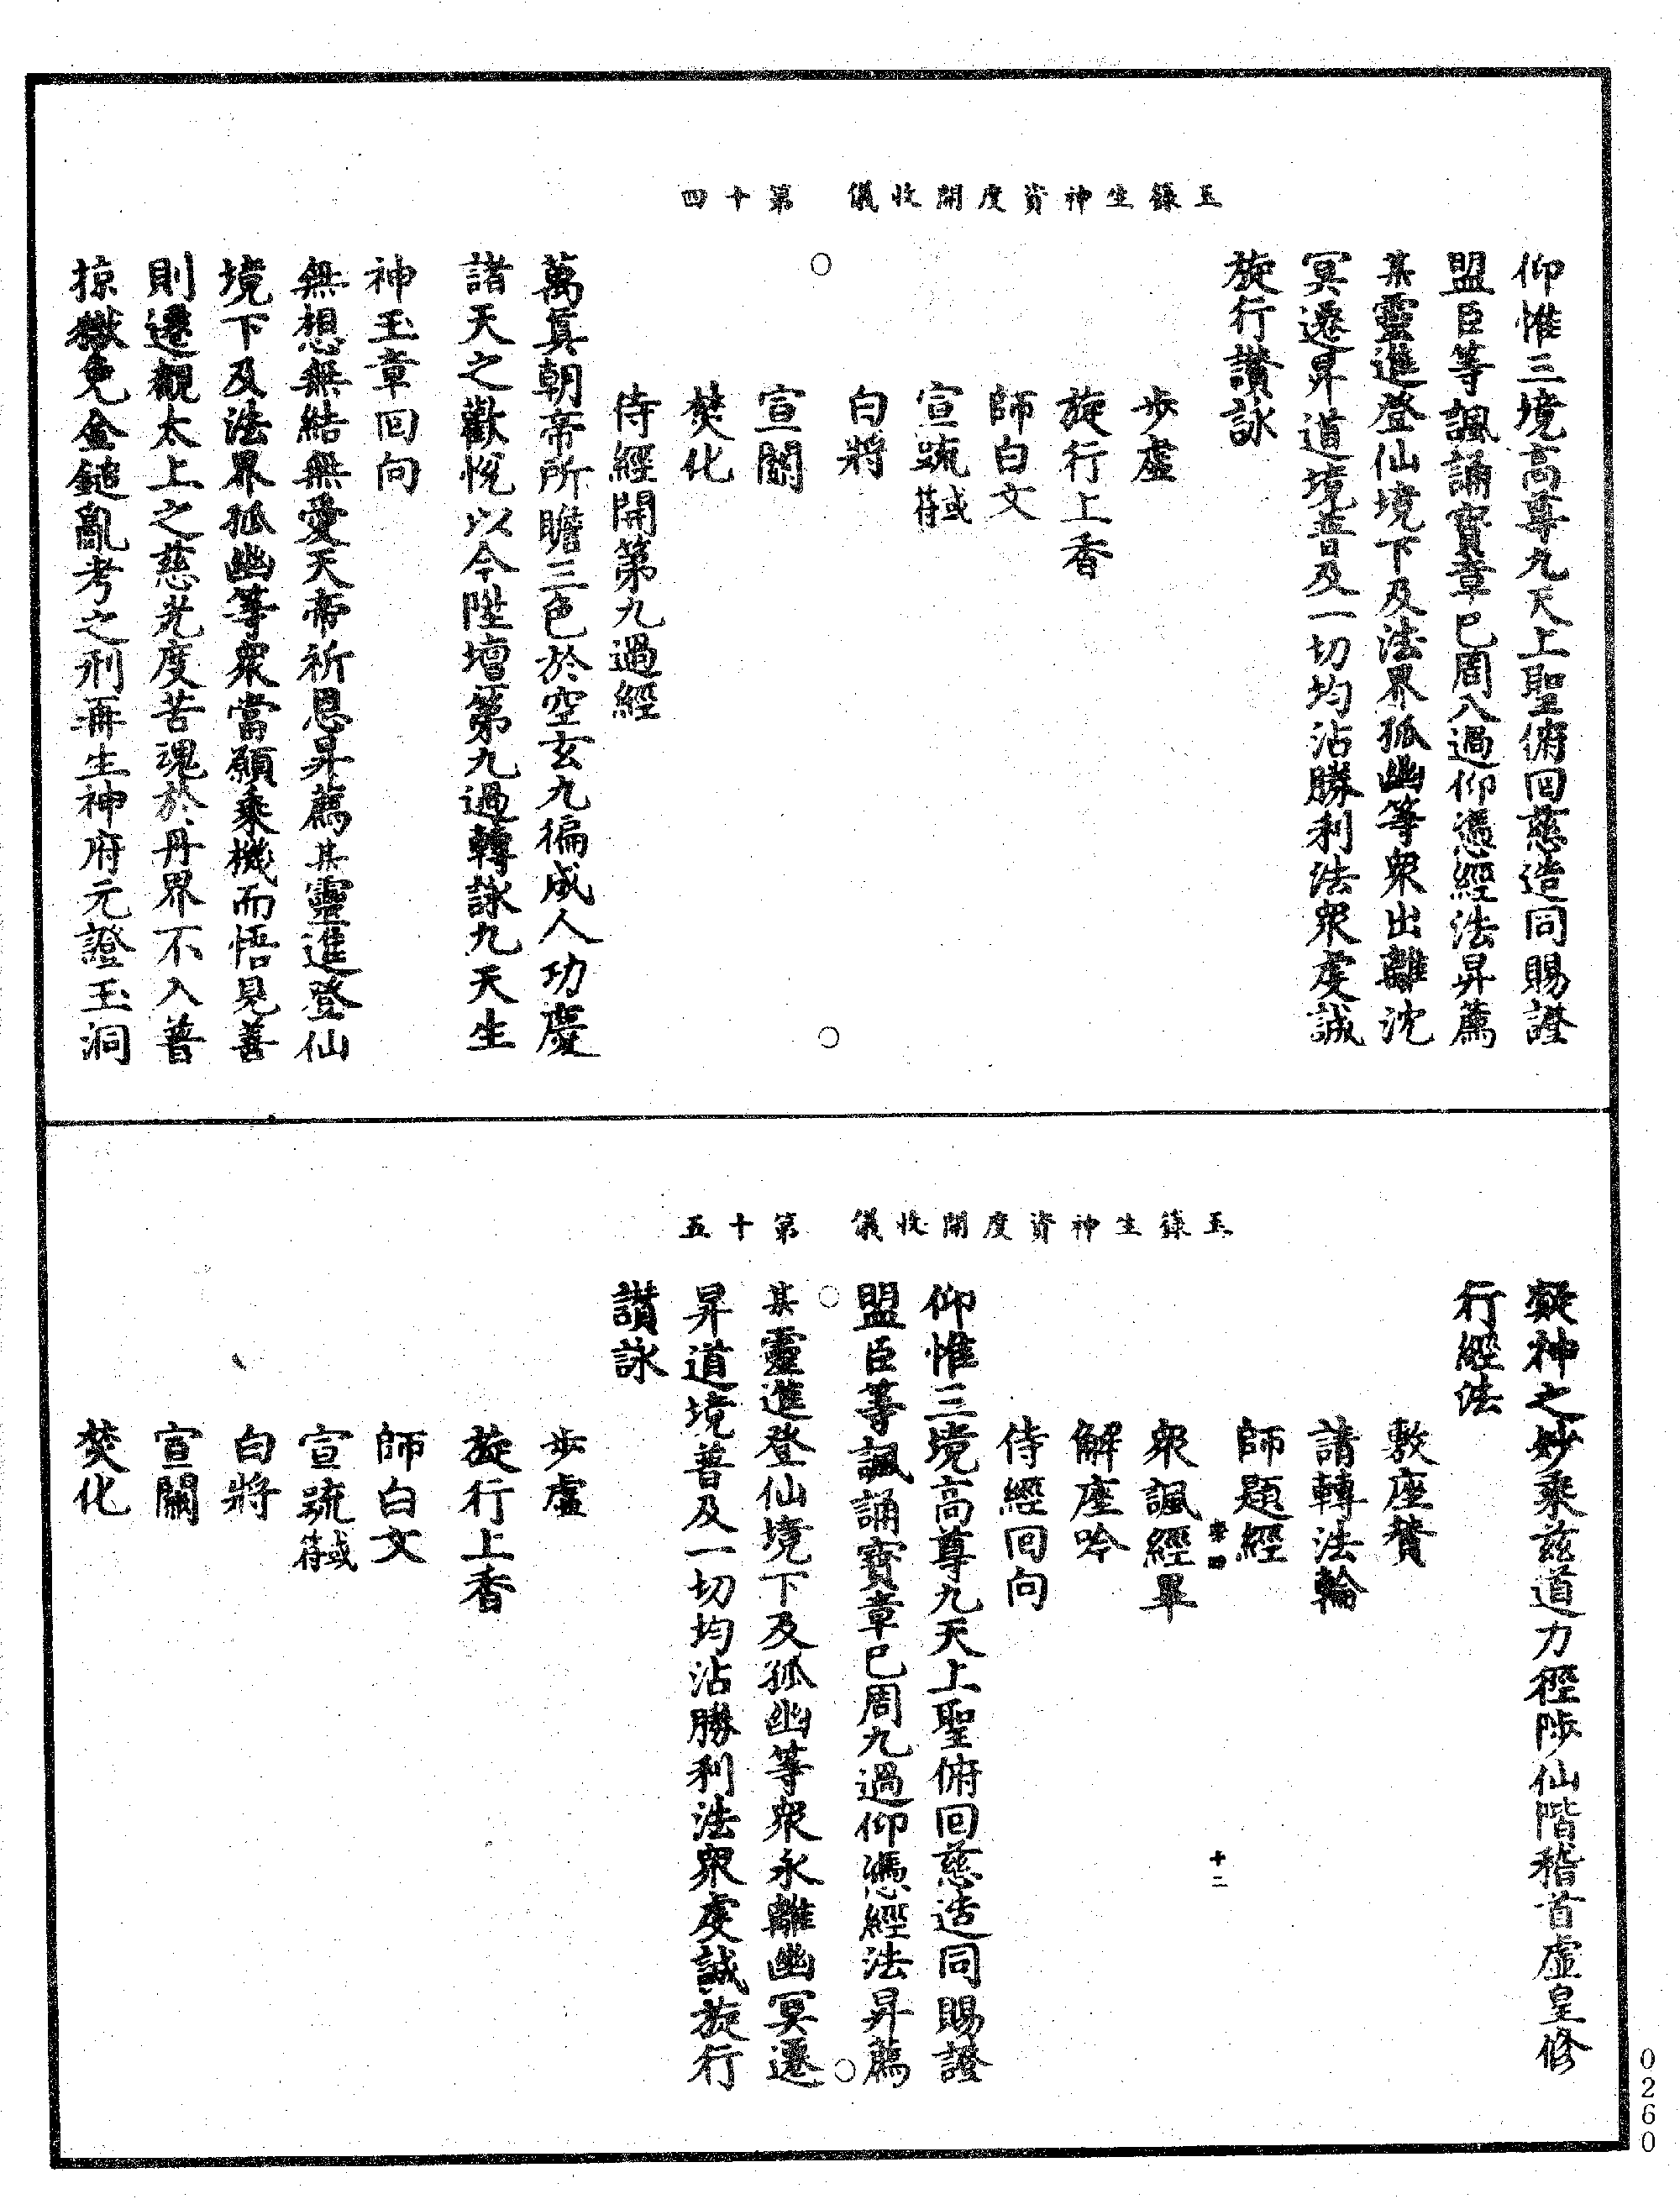 玉籙生神資度開收儀　第十四
仰惟三境高尊九天上聖俯回慈造同賜證
盟臣等諷誦寶章已周八過仰憑經法昇薦
某靈進登仙境下及法界孤幽等衆出離沈
冥遷昇道境普及一切均沾勝利法衆虔誠
旋行讚詠
步虛
旋行上香
師白文
宣疏符或
白將
宣關
焚化
侍經開第九過經
萬眞朝帝所瞻三色於空玄九徧成人功慶
諸天之歡悅以今陞壇第九過轉詠九天生
神玉章回向
無想無結無愛天帝祈恩昇薦某靈進登仙
境下及法界孤幽等衆當願乘機而悟見善
則遷觀太上之慈光度苦魂於丹界不入普
掠獄免金鎚亂考之刑再生神府元證玉洞
玉籙生神資度開收儀　第十五
凝神之妙乘兹道力徑陟仙階稽首虛皇修
行經法
敷座贊
請轉法輪
師題經
章四　十二
衆諷經畢
解座吟
侍經回向
仰惟三境高尊九天上聖俯回慈造同賜證
盟臣等諷誦寶章已周九過仰憑經法昇薦
某靈進登仙境下及孤幽等衆永離幽冥遷
昇道境普及一切均沾勝利法衆虔誠旋行
讚詠
步虛
旋行上香
師白文
宣疏符或
白將
宣關
焚化
0260